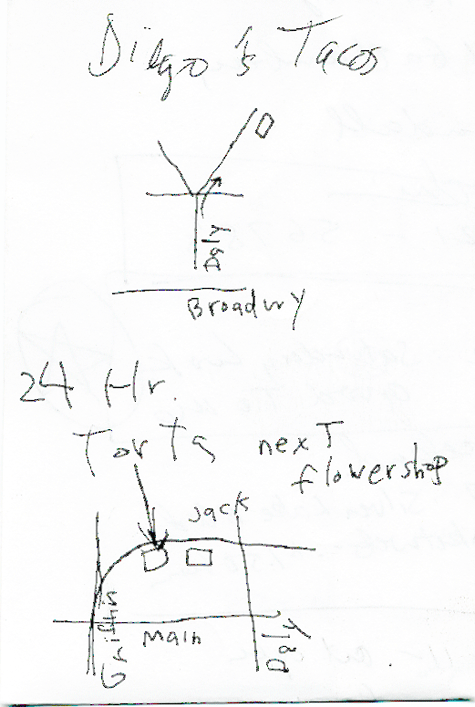 Diego's Tacos
Daly
Broadwry
24 Hr.
Torta next
flowershop
Jack
Griffin
Main
Daly